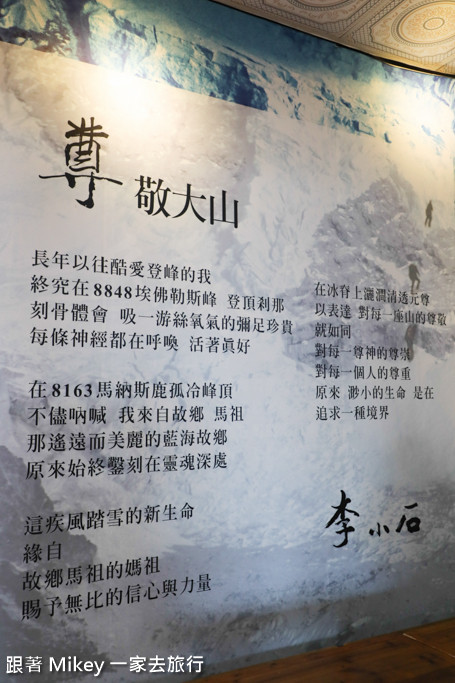 尊敬大山
長年以往酷愛登峰的我
終究在8848埃佛勒斯峰 登頂剎那
刻骨體會 吸一游絲氧氣的彌足珍貴
每條神經都在呼喚 活著眞好
在8163馬納斯鹿孤冷峰頂
不儘吶喊 我來自故鄉 馬祖
那遙遠而美麗的藍海故鄉
原來始終鑿刻在靈魂深處
這疾風踏雪的新生命
緣自
故鄉馬祖的媽祖
賜予無比的信心與力量
在冰脊上灑潤清透元尊
以表達 對每一座山的尊敬
就如同
對每一尊神的尊崇
對每一個人的尊重
原來 渺小的生命 是在
追求一種境界
李小石
跟著 Mikey 一家去旅行